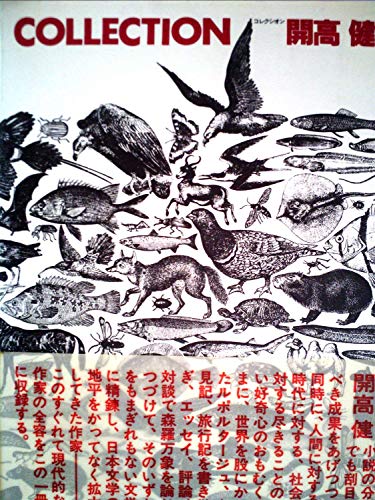 COLLECTION
コレクシオン
開高 健
開高 健
小説の分
でも刮目
べき成果をあげつつ
同時に、人間に対す
時代に対する、社会
対する尽きることの
い好奇心のおもむ
まに、世界を股にか
たルポルタージュ、
見記、旅行記を書
ぎ、エッセイ、評論
対談で森羅万象を論
つづけて、そのいず
をもまぎれもない文
に精錬し、日本文学
地平をかつてなく拡
してきた作家――
このすぐれて現代的な
作家の全容をこの一冊
に収録する。